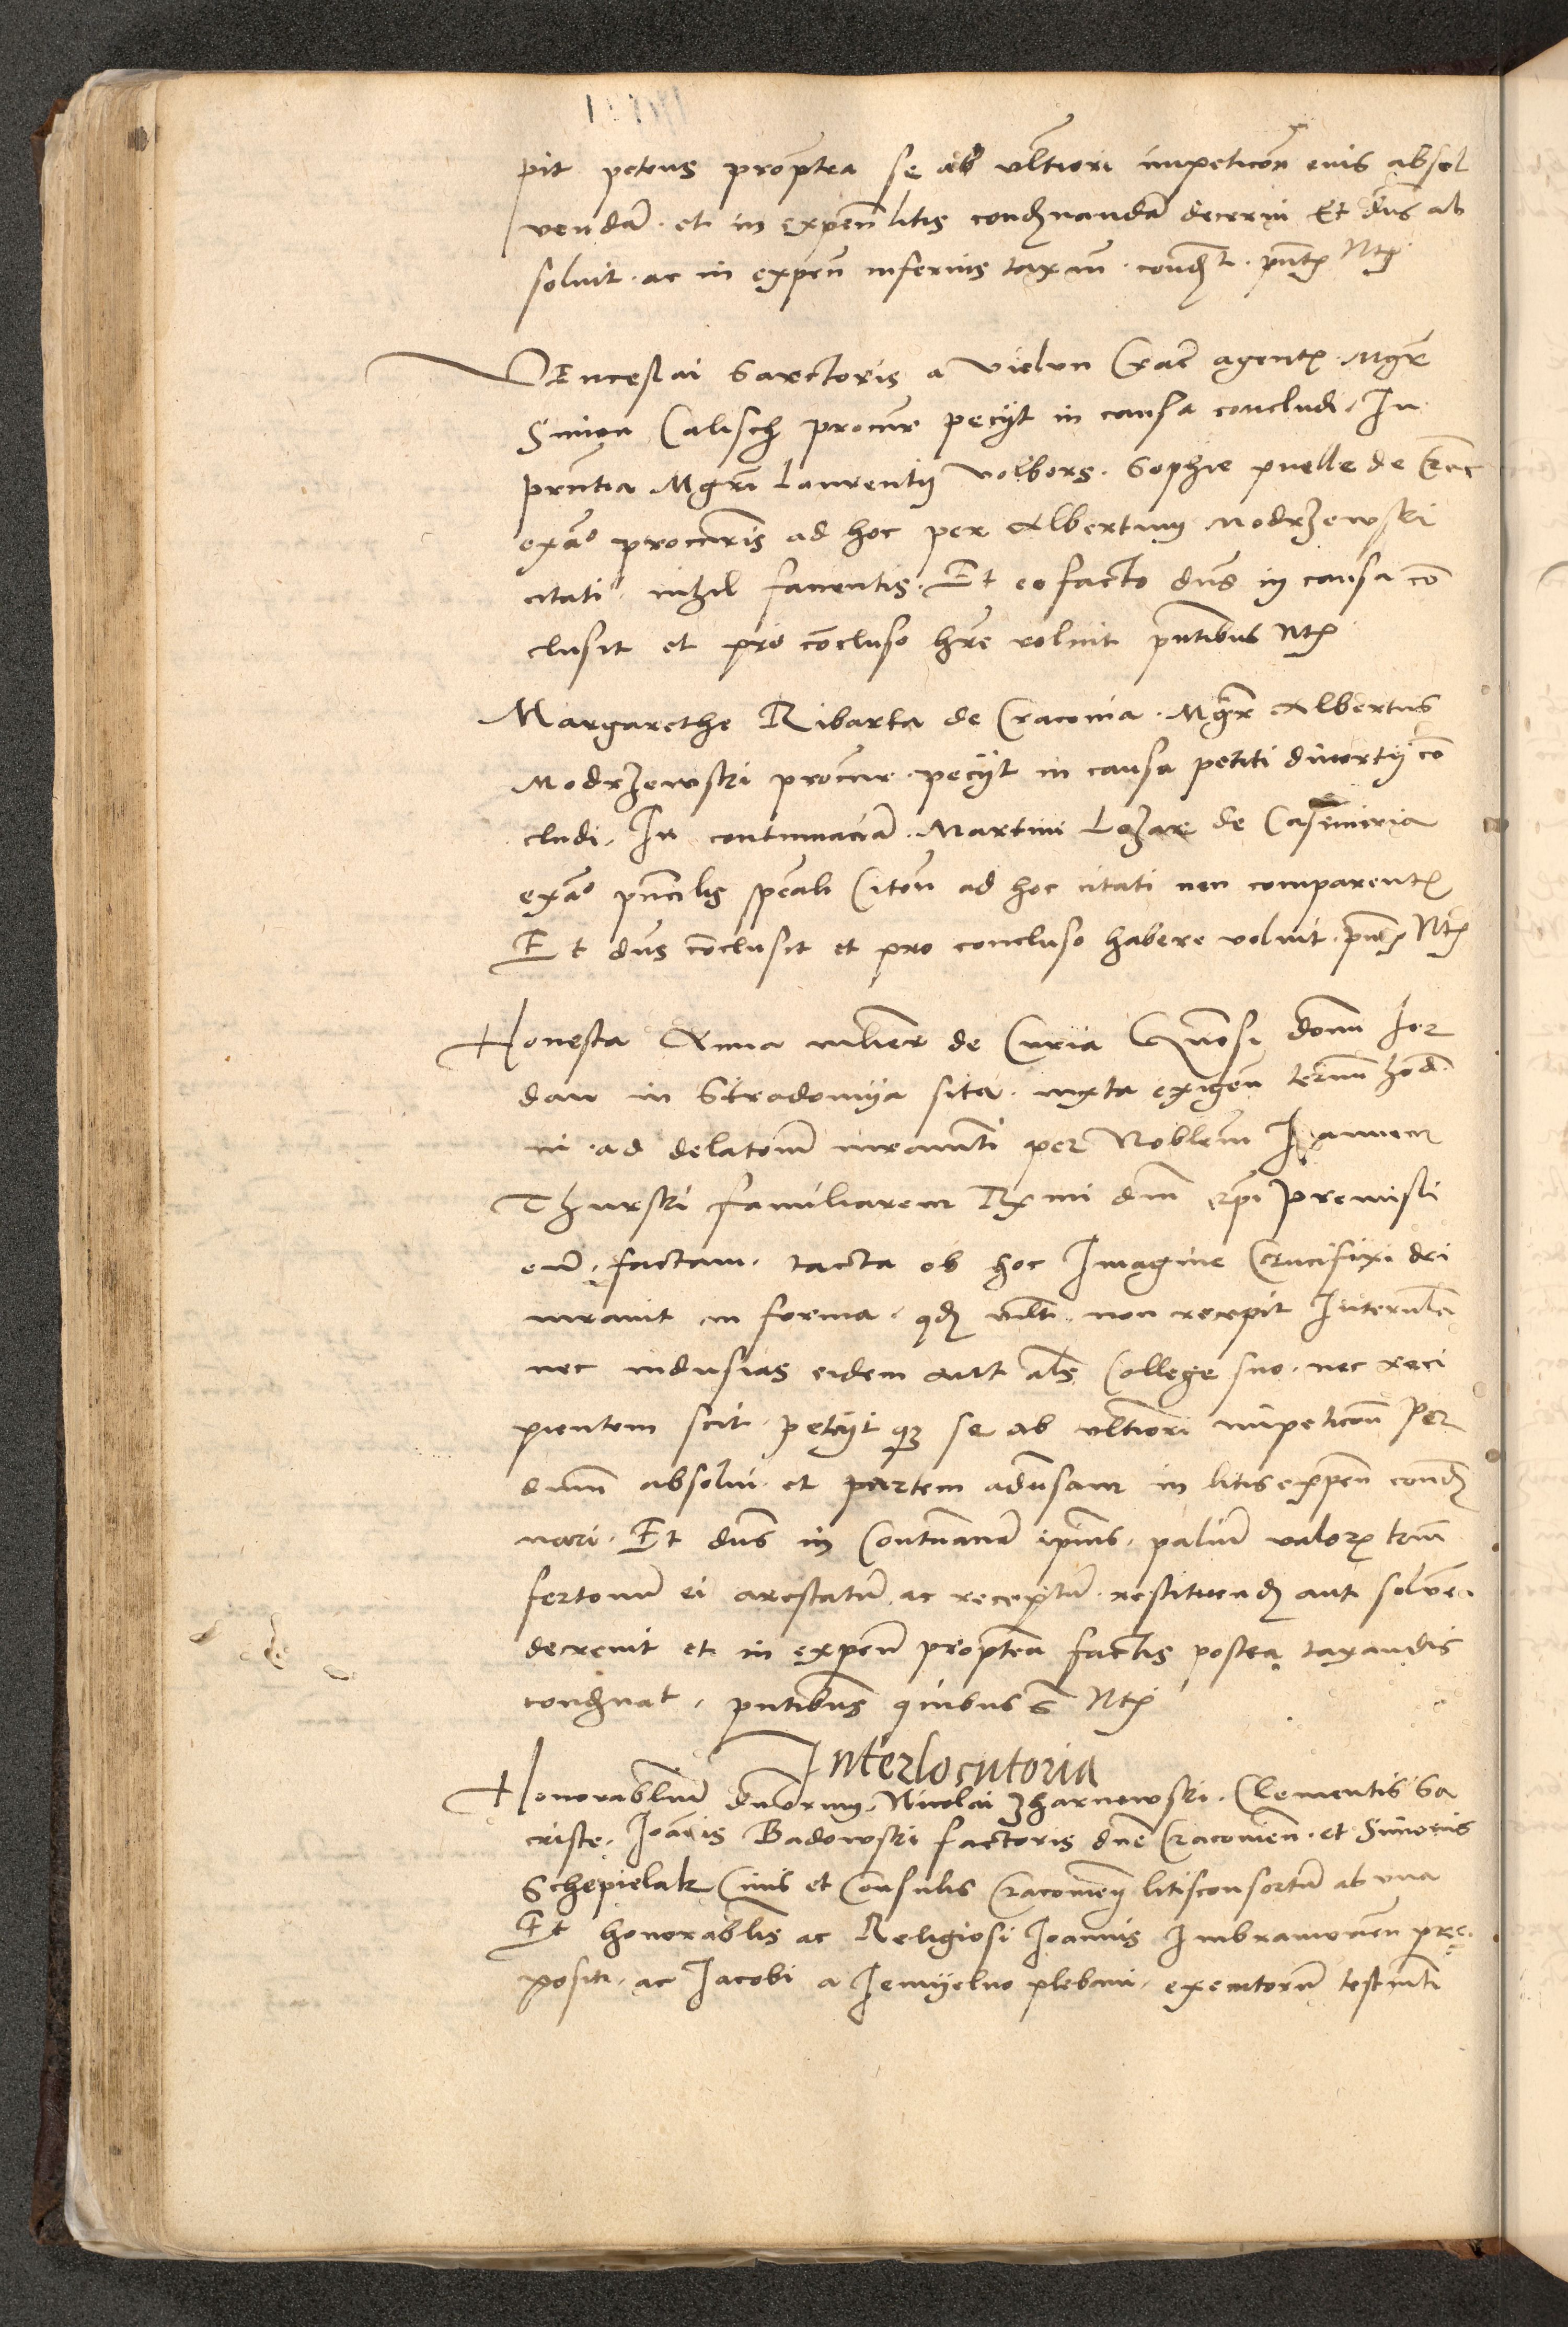 pit petens propterea se ab ulteriori impeticon eius absol
vendam et in expen litis condemnandam decerni Et dns ab
soluit ac in expen inferius taxan condt pntibus Ntis
VEnceslai Sarctoris a Vielun Crac agentis Mgr
Simon Calisch procur peciit in causa concludi In
pntia Mgri Laurentij Volbors Sophie puelle de Crac
ex ado procuris ad hoc per Albertum Modrzewski
citati nihil facientis Et eo facto dns in causa con
clusit et pro concluso hre voluit pntibus Ntis
Margarethe Ribarka de Cracovia Mgr Albertus
Modrzewski procur peciit in causa petiti divortij con
cludi In contumaciam Martini Lozar de Casimiria
ex adō principalis speciali Citon ad hoc citati non comparentis
Et dns conclusit et pro concluso habere voluit pntibus Ntis
Honesta Anna mulier de Curia Gnosi domini Jor
dan in Stradomya sita iuxta exigen termini hodi
ni ad delationem iuramti per Noblem Joannem
Thurski familiarem Rmi dni epi Premisli
en factam tacta ob hoc Imagine Crucifixi dei
iuravit in forma qd non recepit Interula
nec indusias eidem aut als College suo nec reci
pientem scit petiit qz se ab ulteriori impeticon per
dnum absolvi et partem adversam in litis expen condem
nari Et dns in Contumaciam ipius palium valoris trium
fertonum ei arestatum ac receptum restituend aut solvere
decrevit et in expen propterea factis postea taxandis
condemnat pntibus quibus s Ntis
Interlocutoria
Honorabilium dnorum Nicolai Zharnowski Clementis Sa
criste Joannis Badowski factoris dne Cracovien et Simonis
Schepielak Civis et Consulis Cracovien litisconsortum ab una
Et honorabilis ac Religiosi Joannis Imbramovien pre
positi ac Jacobi a Jemyelno plebani executorum testamti